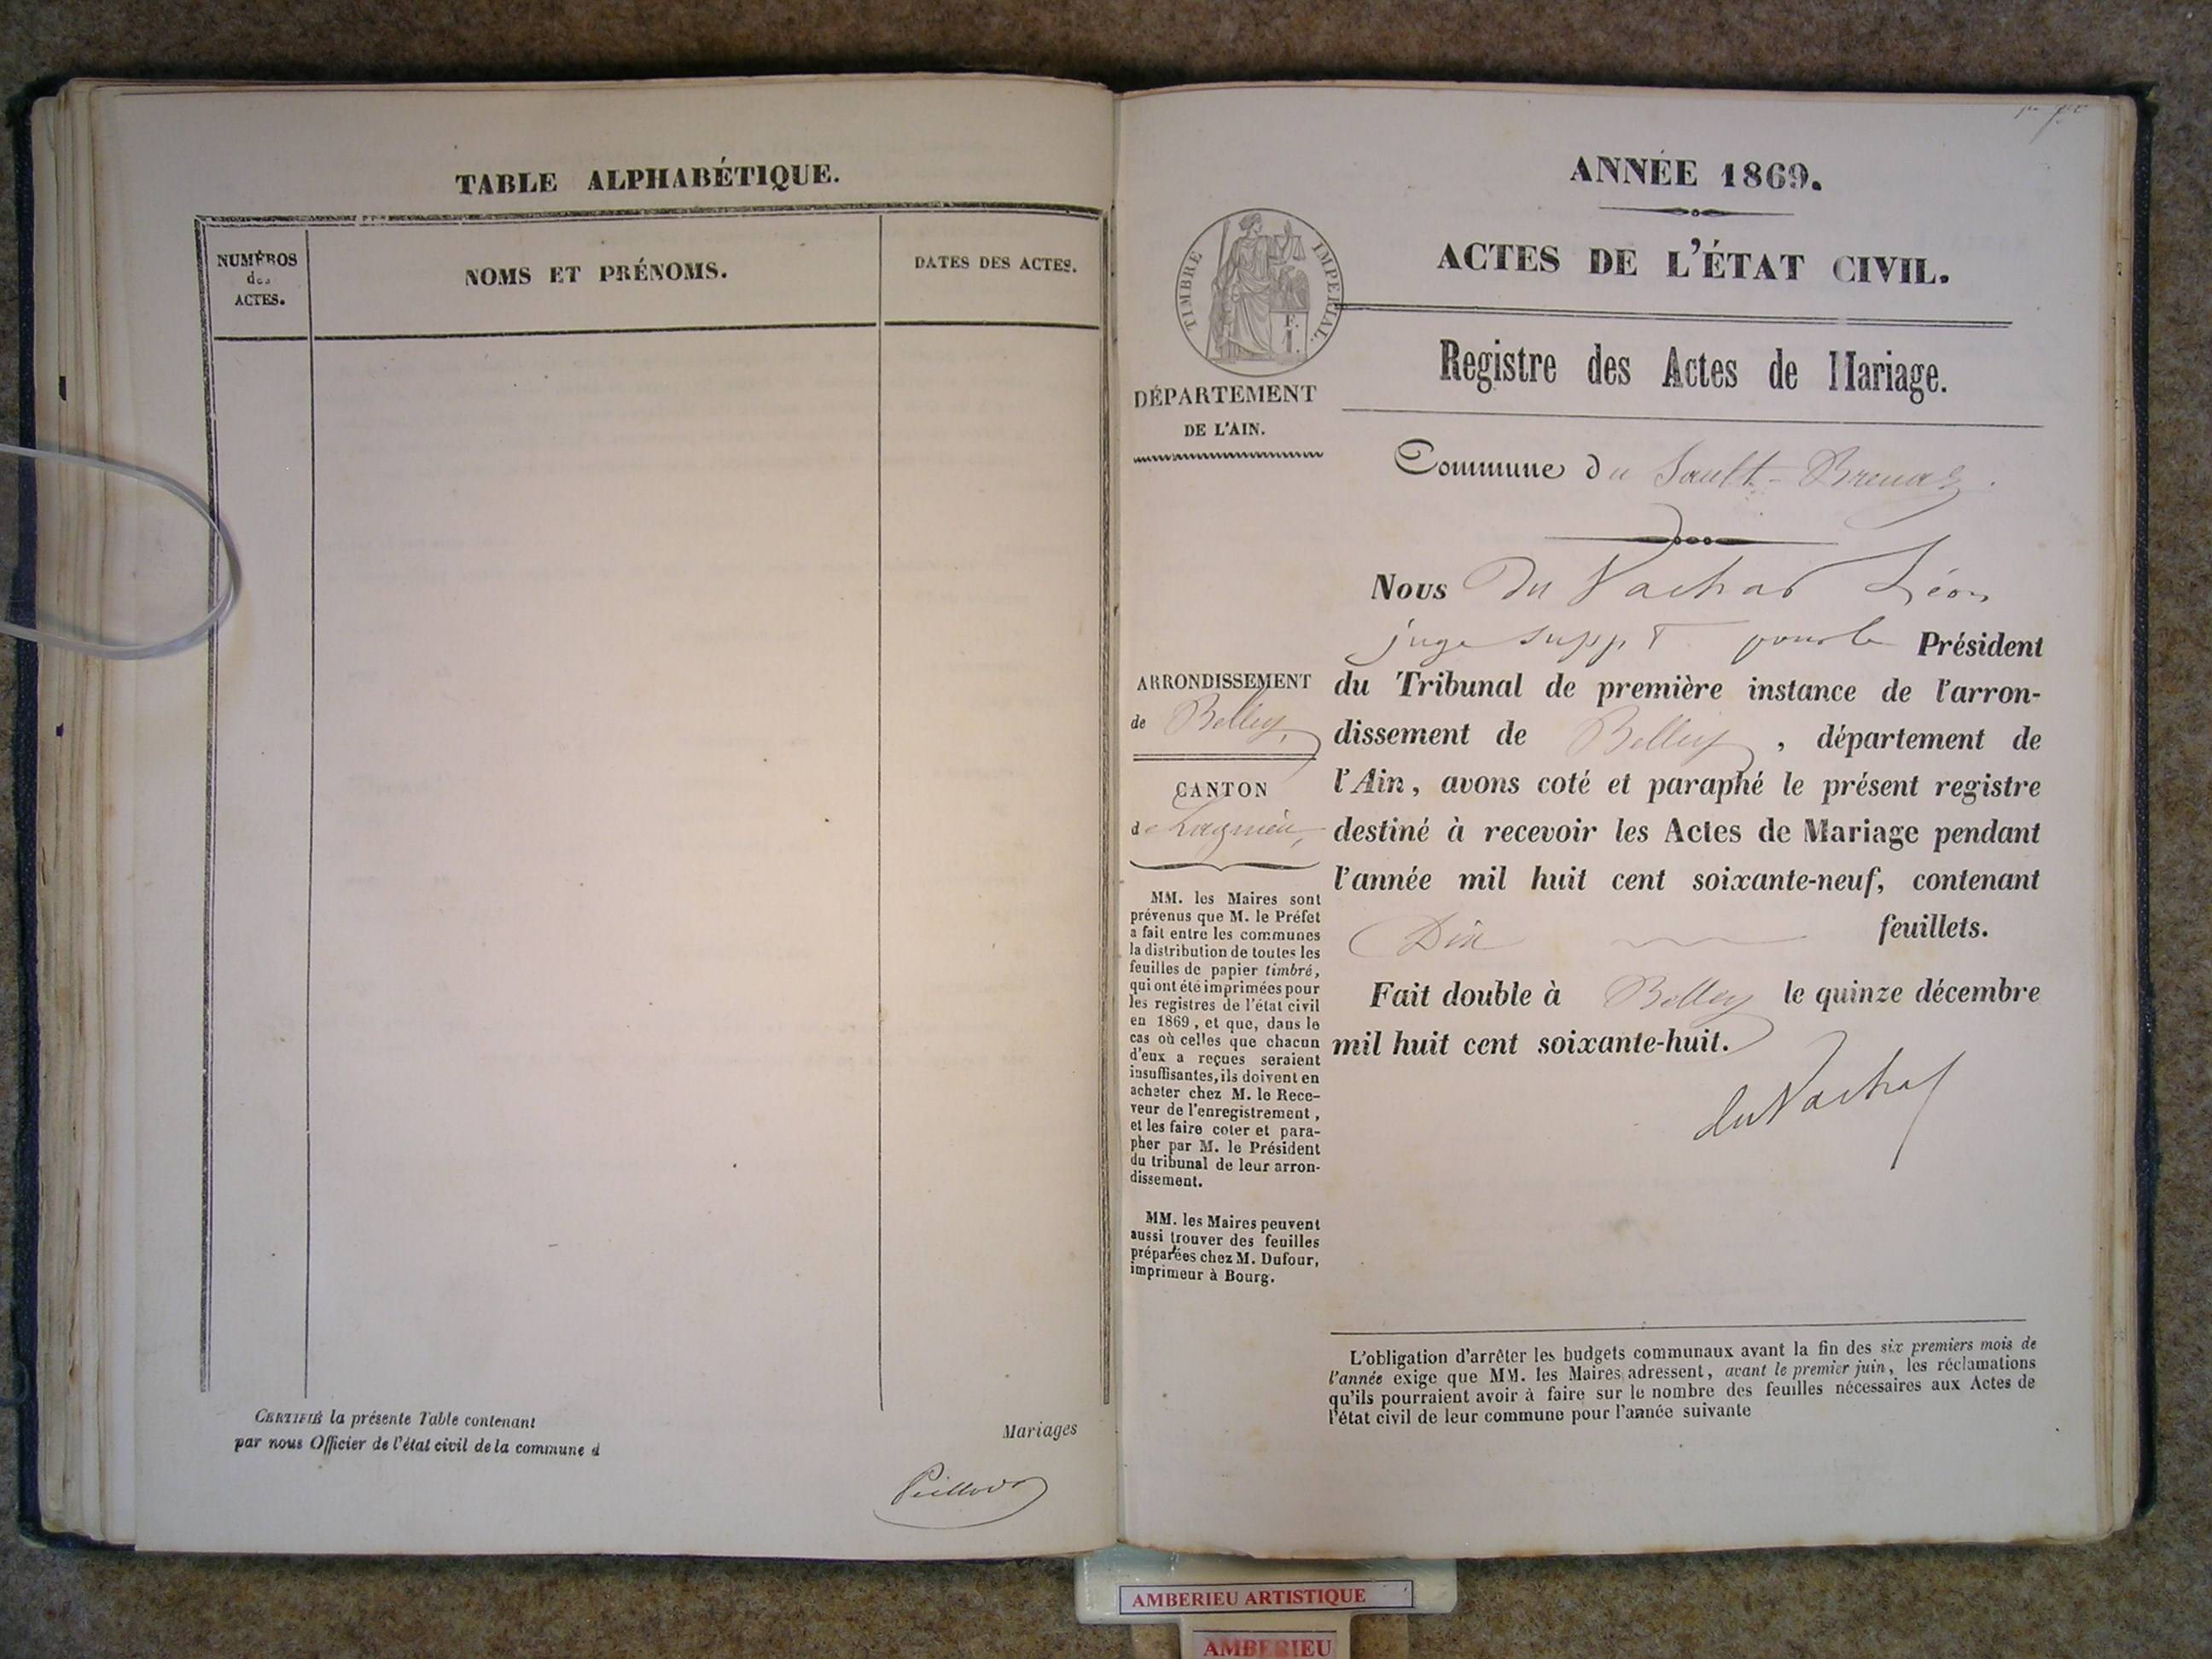 TABLE ALPHABÉTIQUE.
NUMÉROS
des
ACTES.
NOMS ET PRÉNOMS.
DATES DES ACTES.
CERTIFIÉ la présente Table contenant
Mariages
par nous Officier de l'état civil de la commune d
ANNÉE 1869.
ACTES DE L'ÉTAT CIVIL.
TIMBRE IMPERIAL.
F.
1.
Registre des Actes de Mariage.
DÉPARTEMENT
DE L'AIN.
Commune du Sault-Brenaz.
ARRONDISSEMENT
de Belley,
CANTON
de Lagnieu,
MM. les Maires sont
prévenus que M. le Préfet
a fait entre les communes
la distribution de toutes les
feuilles de papier timbré,
qui ont été imprimées pour
les registres de l'état civil
en 1869, et que, dans le
cas où celles que chacun
d'eux a reçues seraient
insuffisantes, ils doivent en
acheter chez M. le Rece-
veur de l'enregistrement,
et les faire coter et para-
pher par M. le Président
du tribunal de leur arron-
dissement.
MM. les Maires peuvent
aussi trouver des feuilles
préparées chez M. Dufour,
imprimeur à Bourg.
Nous Du Vachat Léon
juge suppt pour le Président
du Tribunal de première instance de l'arron-
dissement de Belley, département de
l'Ain, avons coté et paraphé le présent registre
destiné à recevoir les Actes de Mariage pendant
l'année mil huit cent soixante-neuf, contenant
Dix feuillets.
Fait double à Belley le quinze décembre
mil huit cent soixante-huit.
du Vachat
L'obligation d'arrêter les budgets communaux avant la fin des six premiers mois de
l'année exige que MM. les Maires adressent, avant le premier juin, les réclamations
qu'ils pourraient avoir à faire sur le nombre des feuilles nécessaires aux Actes de
l'état civil de leur commune pour l'année suivante
AMBERIEU ARTISTIQUE
AMBERIEU